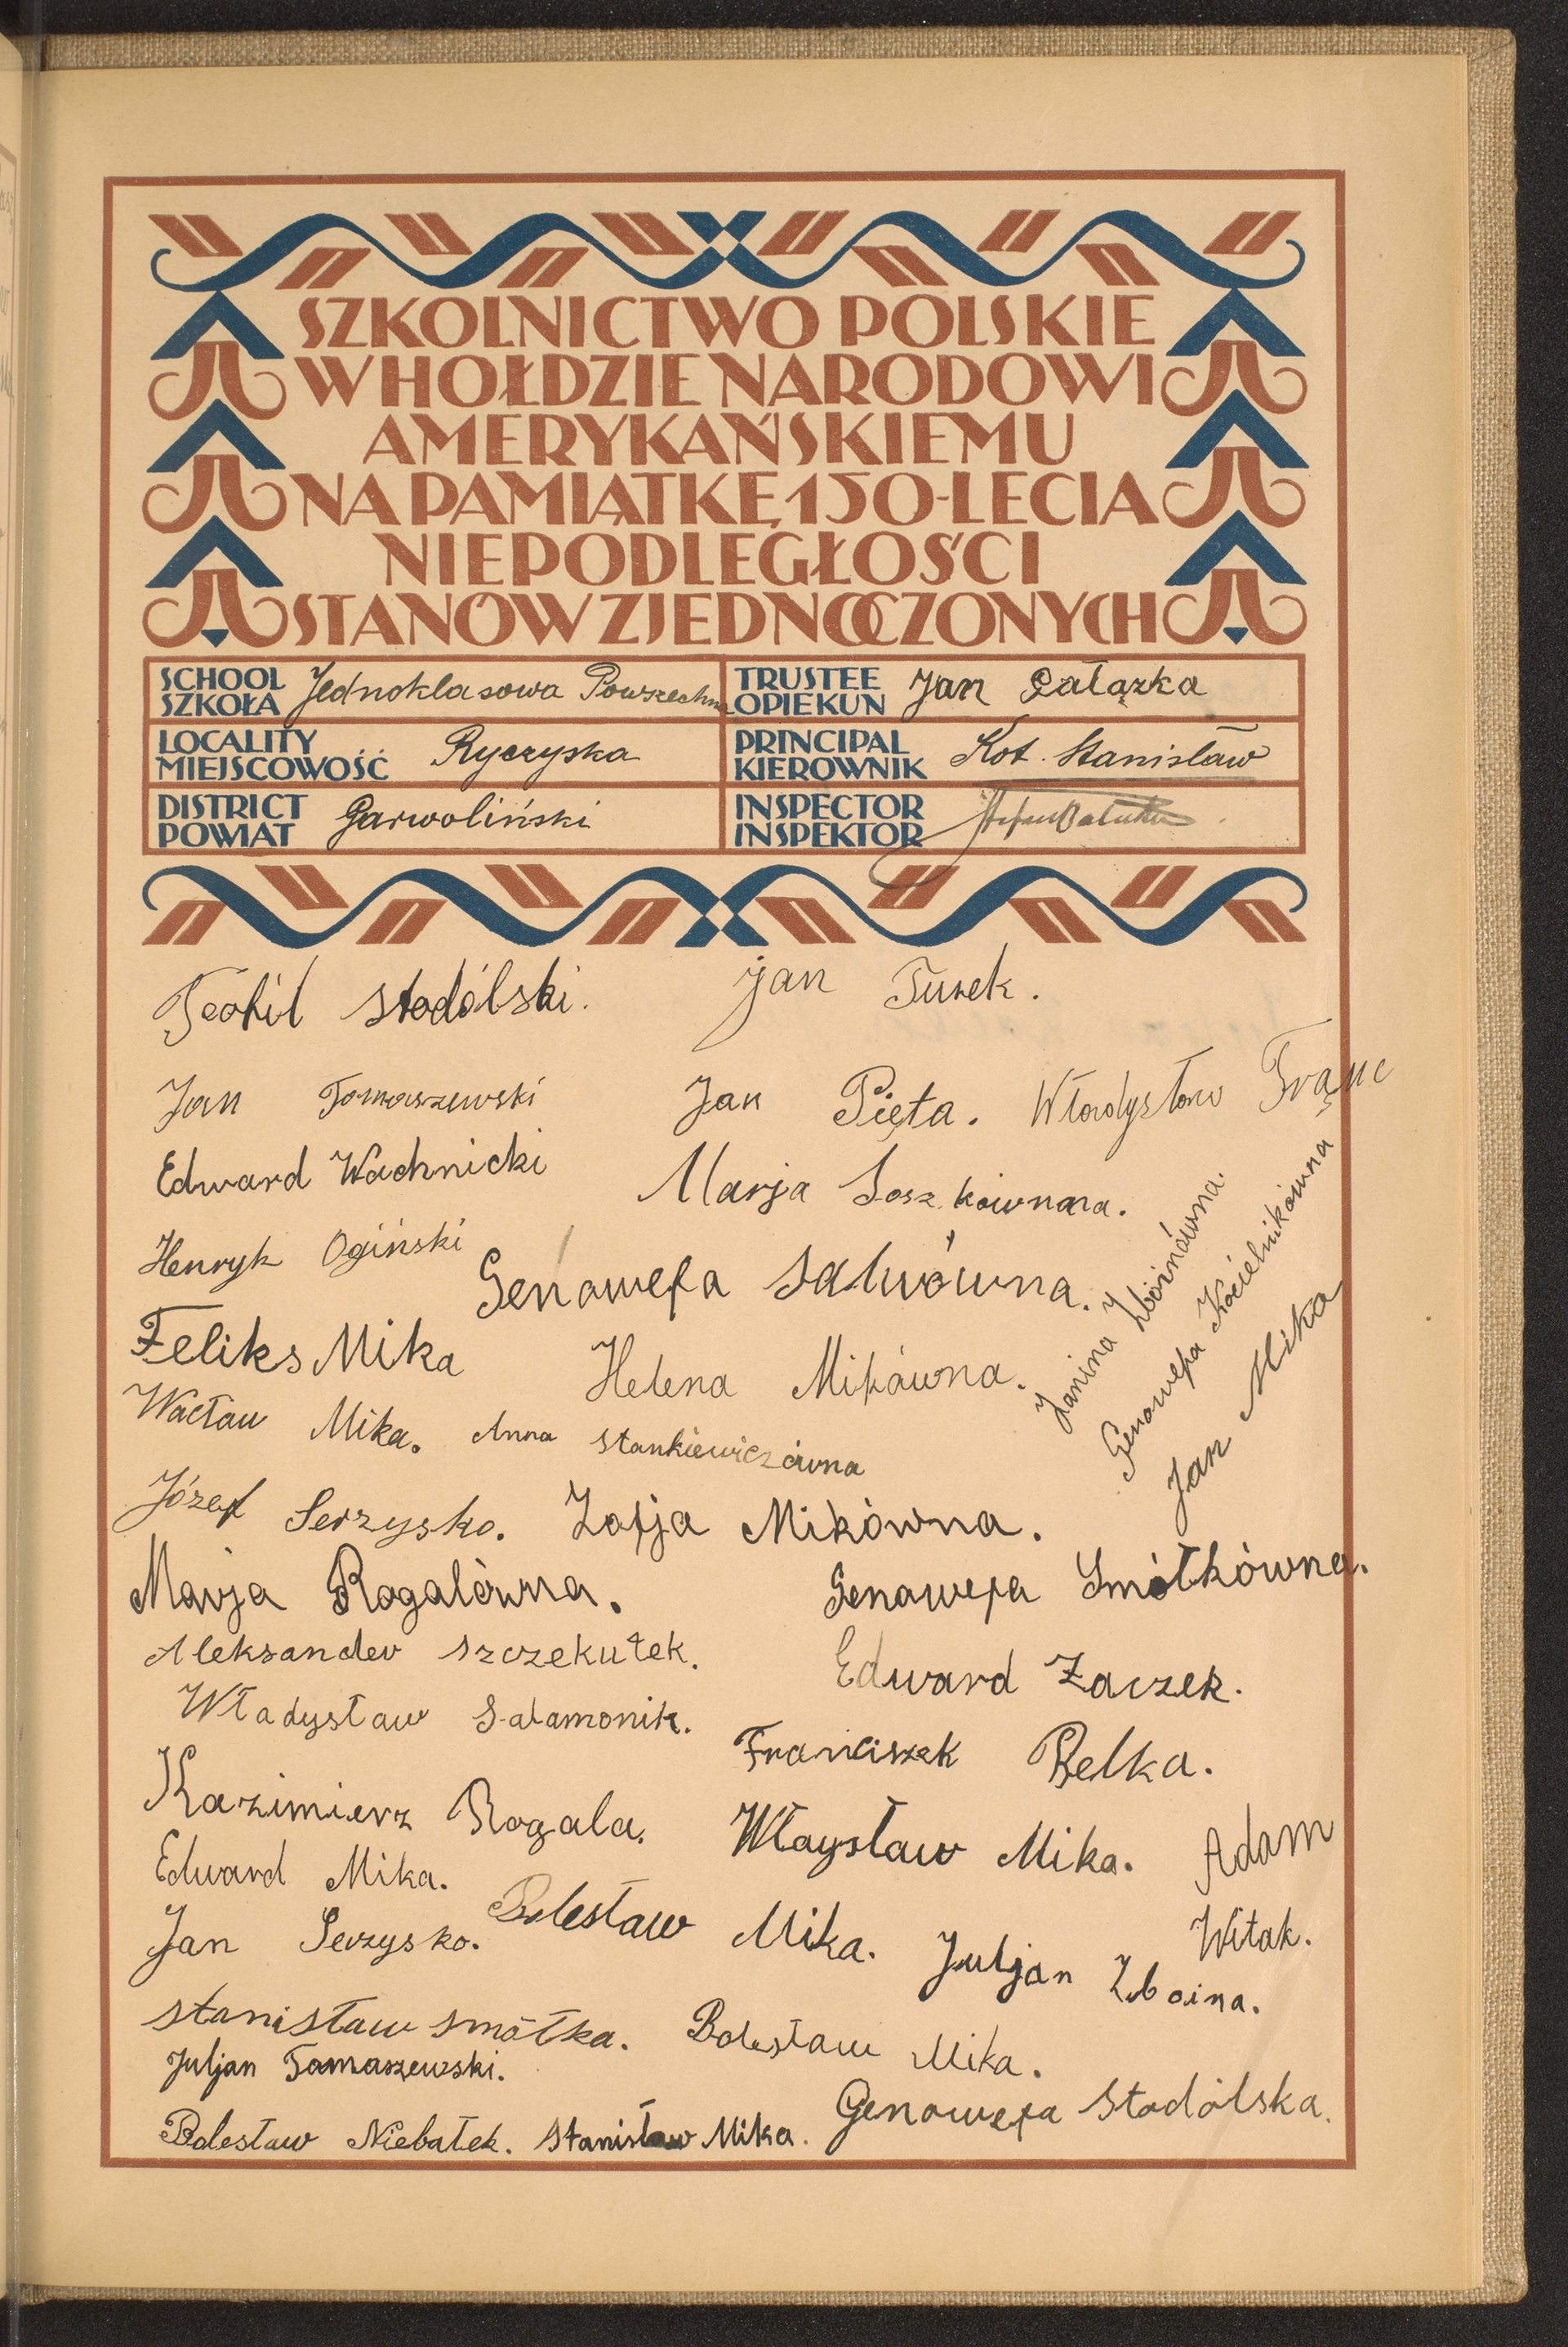 SZKOLNICTWO POLSKIE
W HOŁDZIE NARODOWI
AMERYKAŃSKIEMU
NA PAMIĄTKĘ 150-LECIA
NIEPODLEGŁOŚCI
STANÓW ZJEDNOCZONYCH
SCHOOL
SZKOŁA Jednoklasowa Powszechna
TRUSTEE
OPIEKUN Jan Gałązka
LOCALITY
MIEJSCOWOŚĆ Ryczyska
PRINCIPAL
KIEROWNIK Kot. Stanisław
DISTRICT
POWIAT Garwoliński
INSPECTOR
INSPEKTOR
Teofil Stodólski.
Jan Turek.
Jan Tomaszewski
Jan Pięta.
Władysław Frąnc
Edward Wachnicki
Marja Soszkównana.
Henryk Ogiński
Genowefa Salwówna.
Janina Zbóinówna.
Genowefa Kocielnikówna
Jan Mika
Feliks Mika
Helena Mikówna.
Wacław Mika.
Anna Stankiewiczówna
Józef Serzysko.
Zofja Mikówna.
Marja Rogalówna.
Genowefa Smółkówna.
Aleksander Szczekutek.
Edward Zaczek.
Władysław Salamonik.
Franciszek Belka.
Kazimierz Rogala.
Właysław Mika.
Adam
Witak.
Edward Mika.
Bolesław Mika.
Jan Serzysko.
Juljan Zboina.
Stanisław Smółka.
Bolesław Mika.
Juljan Tomaszewski.
Genowefa Stodólska.
Bolesław Niebałek.
Stanisław Mika.